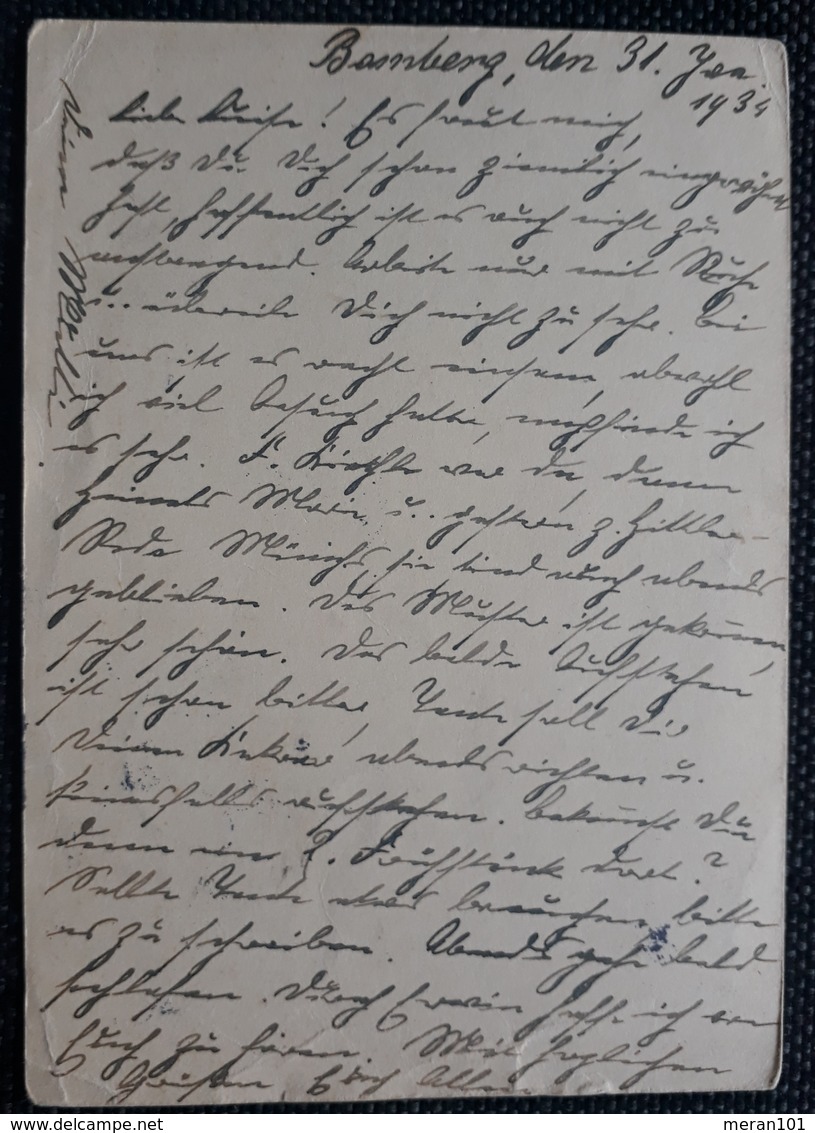 Bamberg, den 31. Jan.
1934
Liebe Luise! Es freut mich,
daß Du Dich schon ziemlich eingewöhnt
hast, hoffentlich ist es auch nicht zu
anstrengend. Arbeite nur mit Ruhe
u. übereile Dich nicht zu sehr. Bei
uns ist es recht einsam, obwohl
ich viel Besuch hatte, empfinde ich
es sehr. F. war da, dann
Marie u. gestern z. Hitler-
Rede Münchs, sie sind auch abends
geblieben. Das Muster ist gekommen,
sehr schön. Das Aufstehen
ist schon bitter, Tante soll Dir
Deinen abends richten u.
keinesfalls aufstehen. Bekommst Du
denn ein 2. Frühstück dort?
Sollte Tante etwas brauchen, bitte
es zu schreiben. Abends gehe bald
schlafen. Durch Erwin hoffe ich von
Euch zu hören. Mit herzlichen
Grüßen, Euch Allen
Deine Mutti
meran101